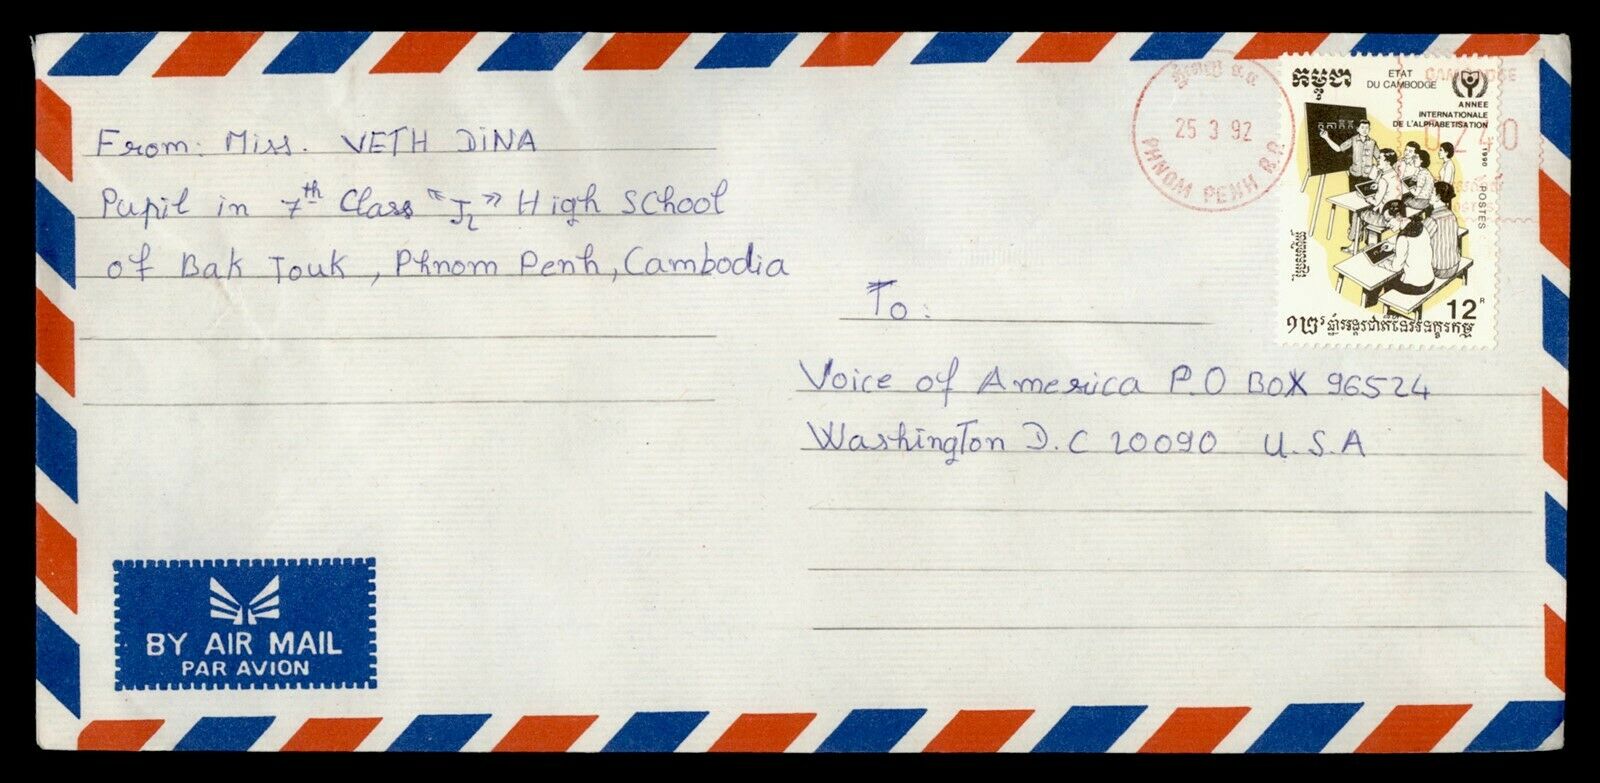 From: Miss. VETH DINA
Pupil in 7th Class "J2" High School
of Bak Touk, Phnom Penh, Cambodia
25 3 92
PHNOM PENH R.P.
កម្ពុជា
ETAT
DU CAMBODGE
ANNEE
INTERNATIONALE
DE L'ALPHABETISATION
1990
POSTES
CAMBODGE
0240
12R
To:
Voice of America P.O BOX 96524
Washington D.C 20090 U.S.A
BY AIR MAIL
PAR AVION